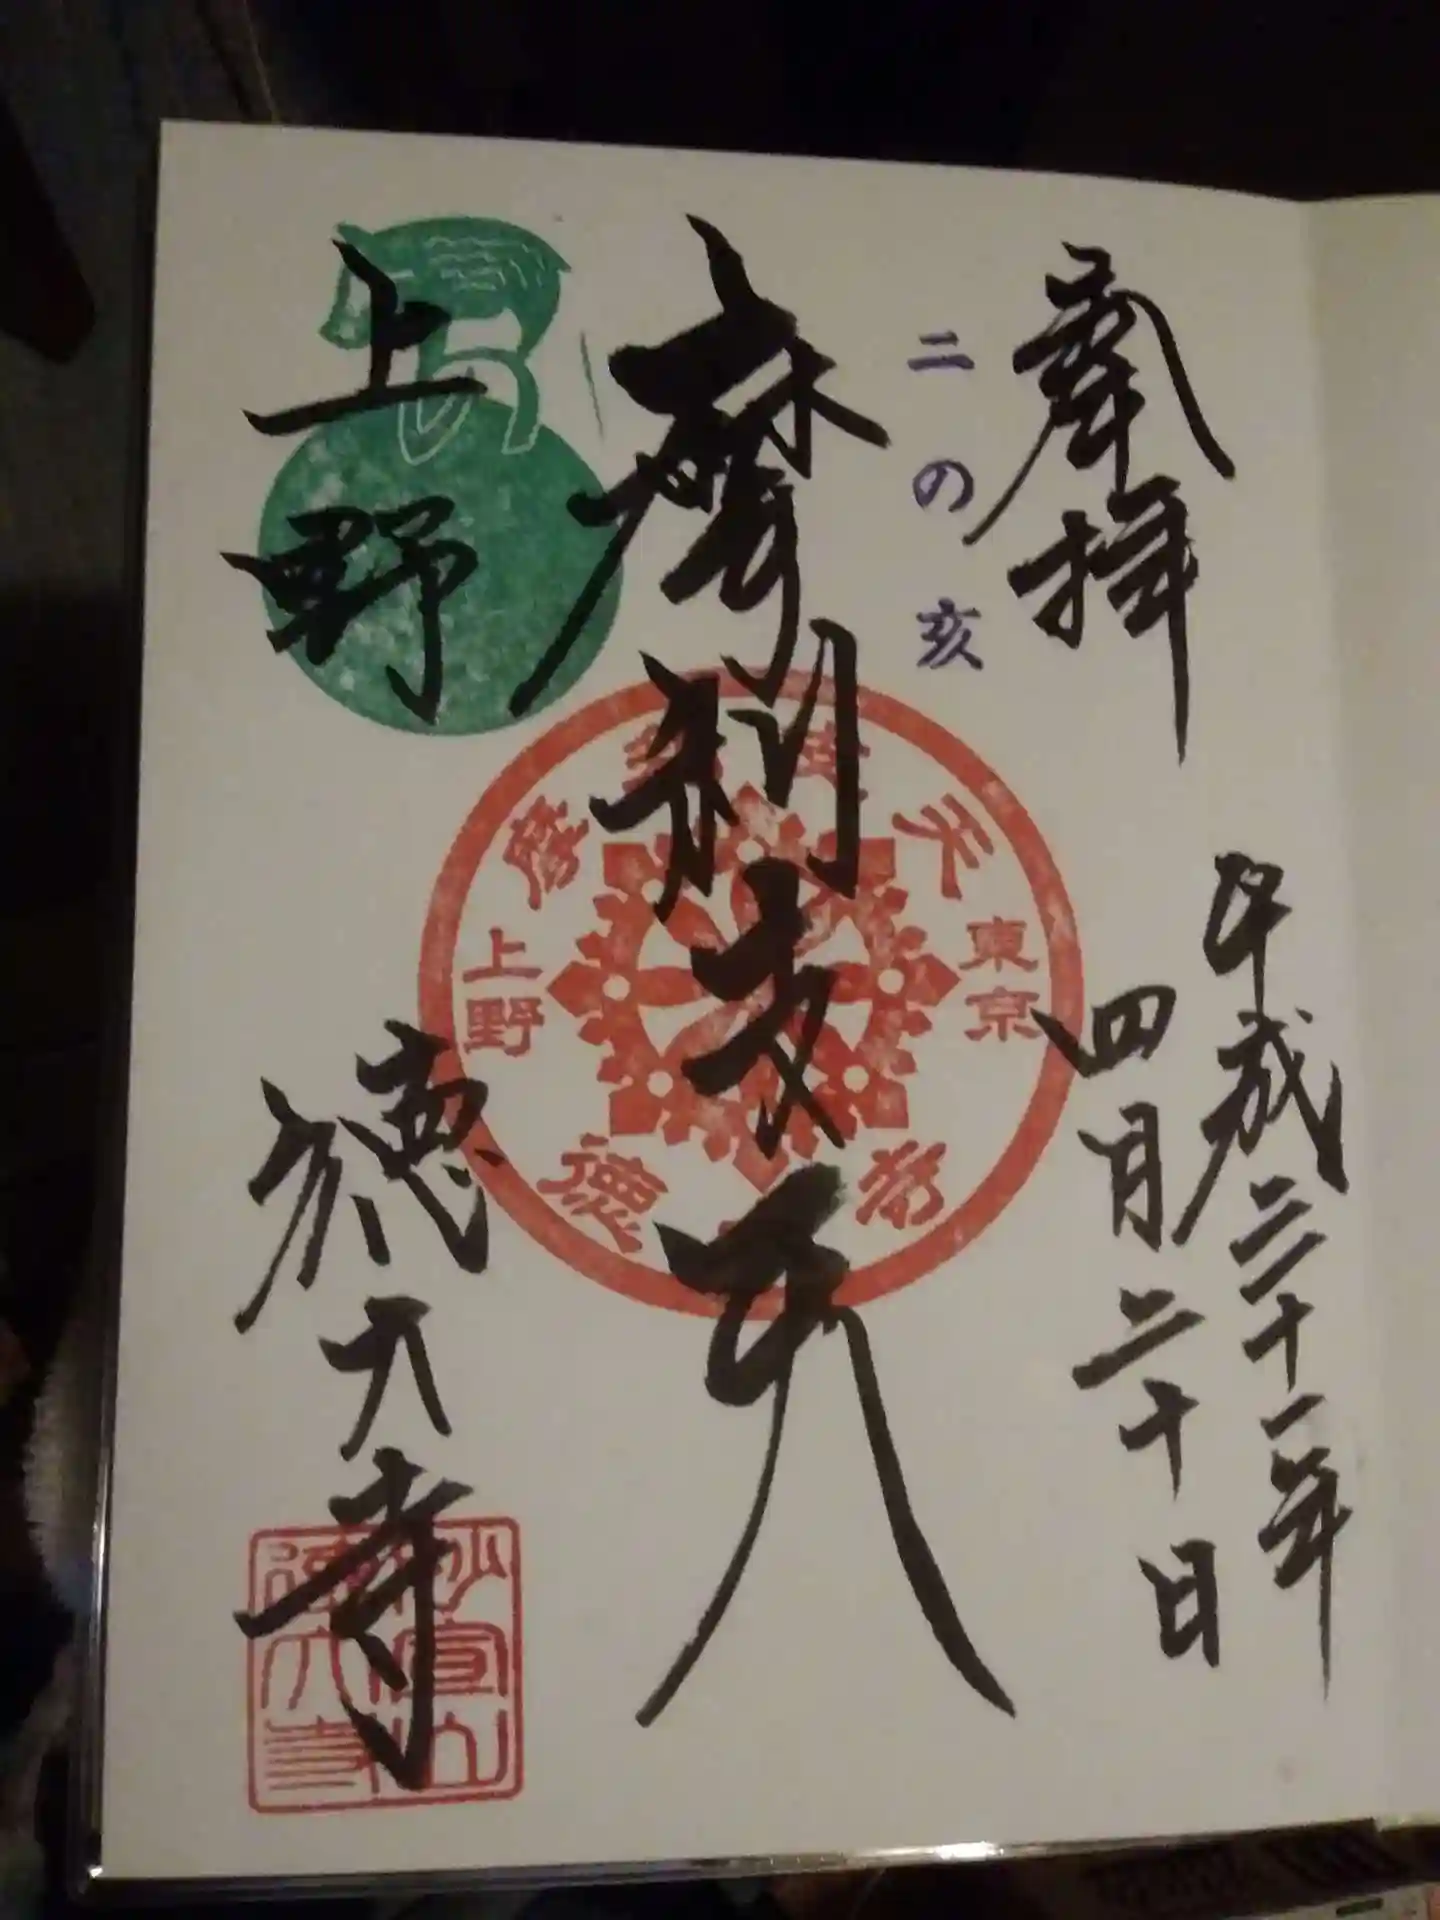 奉拝
二の亥
平成三十一年
四月二十日
摩利支天
上野
徳大寺
摩利支天
東京
上野
徳大寺
妙宣山
徳大寺